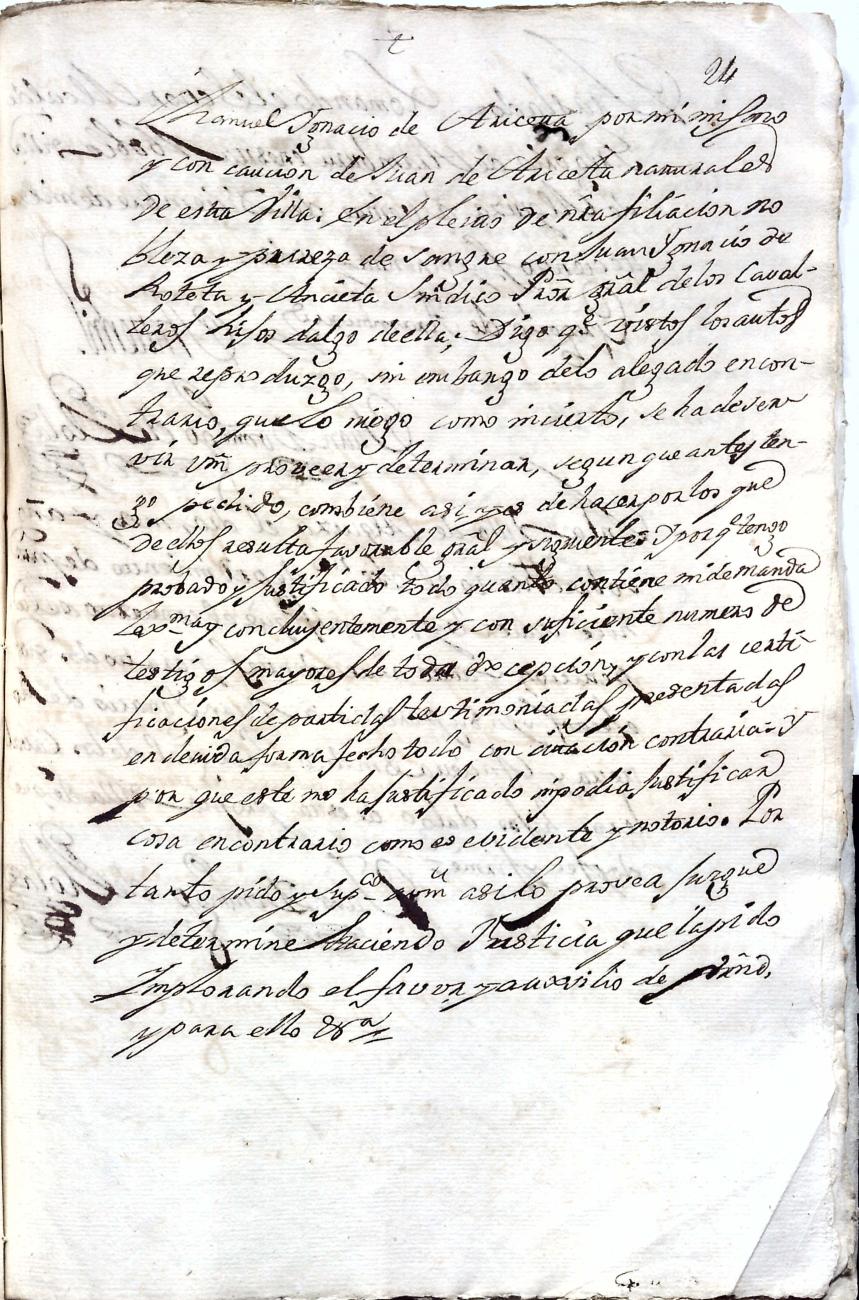 t
24
Manuel Ygnacio de Ariceta por mi mismo
y con caución de Juan de Ariceta naturales
de esta Villa: en el pleito de nrã filiación no
bleza y pureza de sangre con Juan Ygnacio de
Roteta y Ancieta Sindico Prõr grãl de los Caval-
leros hijos dalgo de ella; Digo qe vistos los autos
que reproduzgo, sin embargo delo alegado encon-
trario, que lo niego como incierto, se ha de ser-
vir vm̃ proveer y determinar, segun que antes ten-
go pedido, combiene asi, y es de hacer por los que
de ellos resulta favorable grãl y siguiente: Y porq̃ tengo
probado y justificado todo quanto contiene mi demanda
larma y concluyentemente y con suficiente numero de
testigos mayores de toda excepción, y con las certi-
ficaciones de partidas testimoniadas presentadas
en devida forma fecho todo con citación contraria: Y
por que este no ha justificado ni podia justificar
cosa encontrario como es evidente y notorio. Por
tanto pido y supco a vm̃ asi lo provea juzgue
y determine haciendo Justicia que la pido
Implorando el favor y auxilio de
y para ello &ra